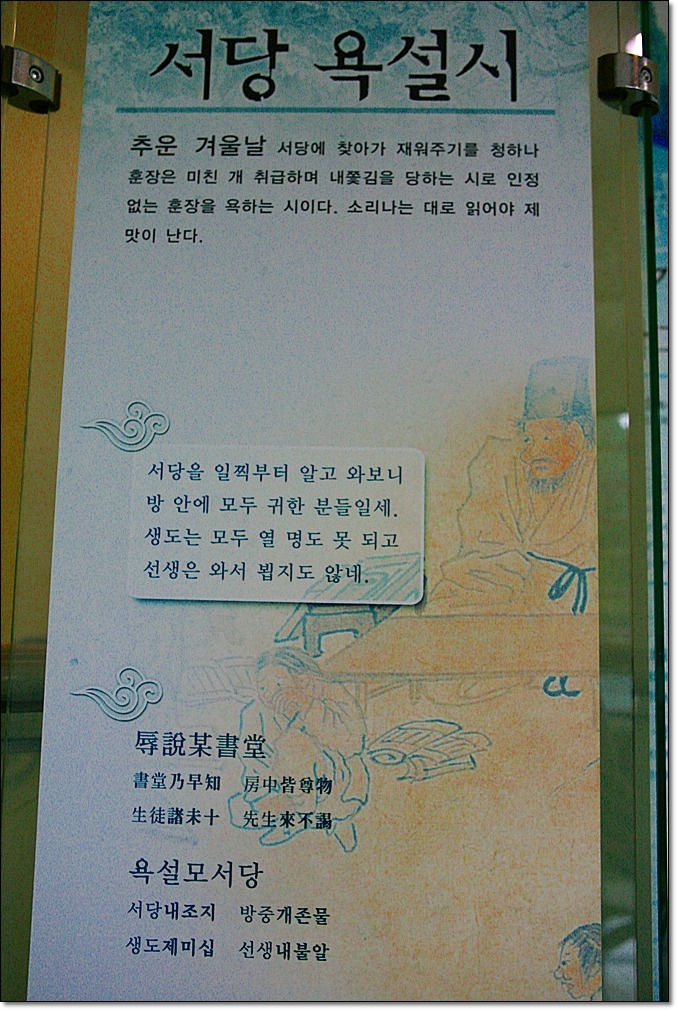 서당 욕설시
추운 겨울날 서당에 찾아가 재워주기를 청하나
훈장은 미친 개 취급하며 내쫓김을 당하는 시로 인정
없는 훈장을 욕하는 시이다. 소리나는 대로 읽어야 제
맛이 난다.
서당을 일찍부터 알고 와보니
방 안에 모두 귀한 분들일세.
생도는 모두 열 명도 못 되고
선생은 와서 뵙지도 않네.
辱說某書堂
書堂乃早知 房中皆尊物
生徒諸未十 先生來不謁
욕설모서당
서당내조지 방중개존물
생도제미십 선생내불알